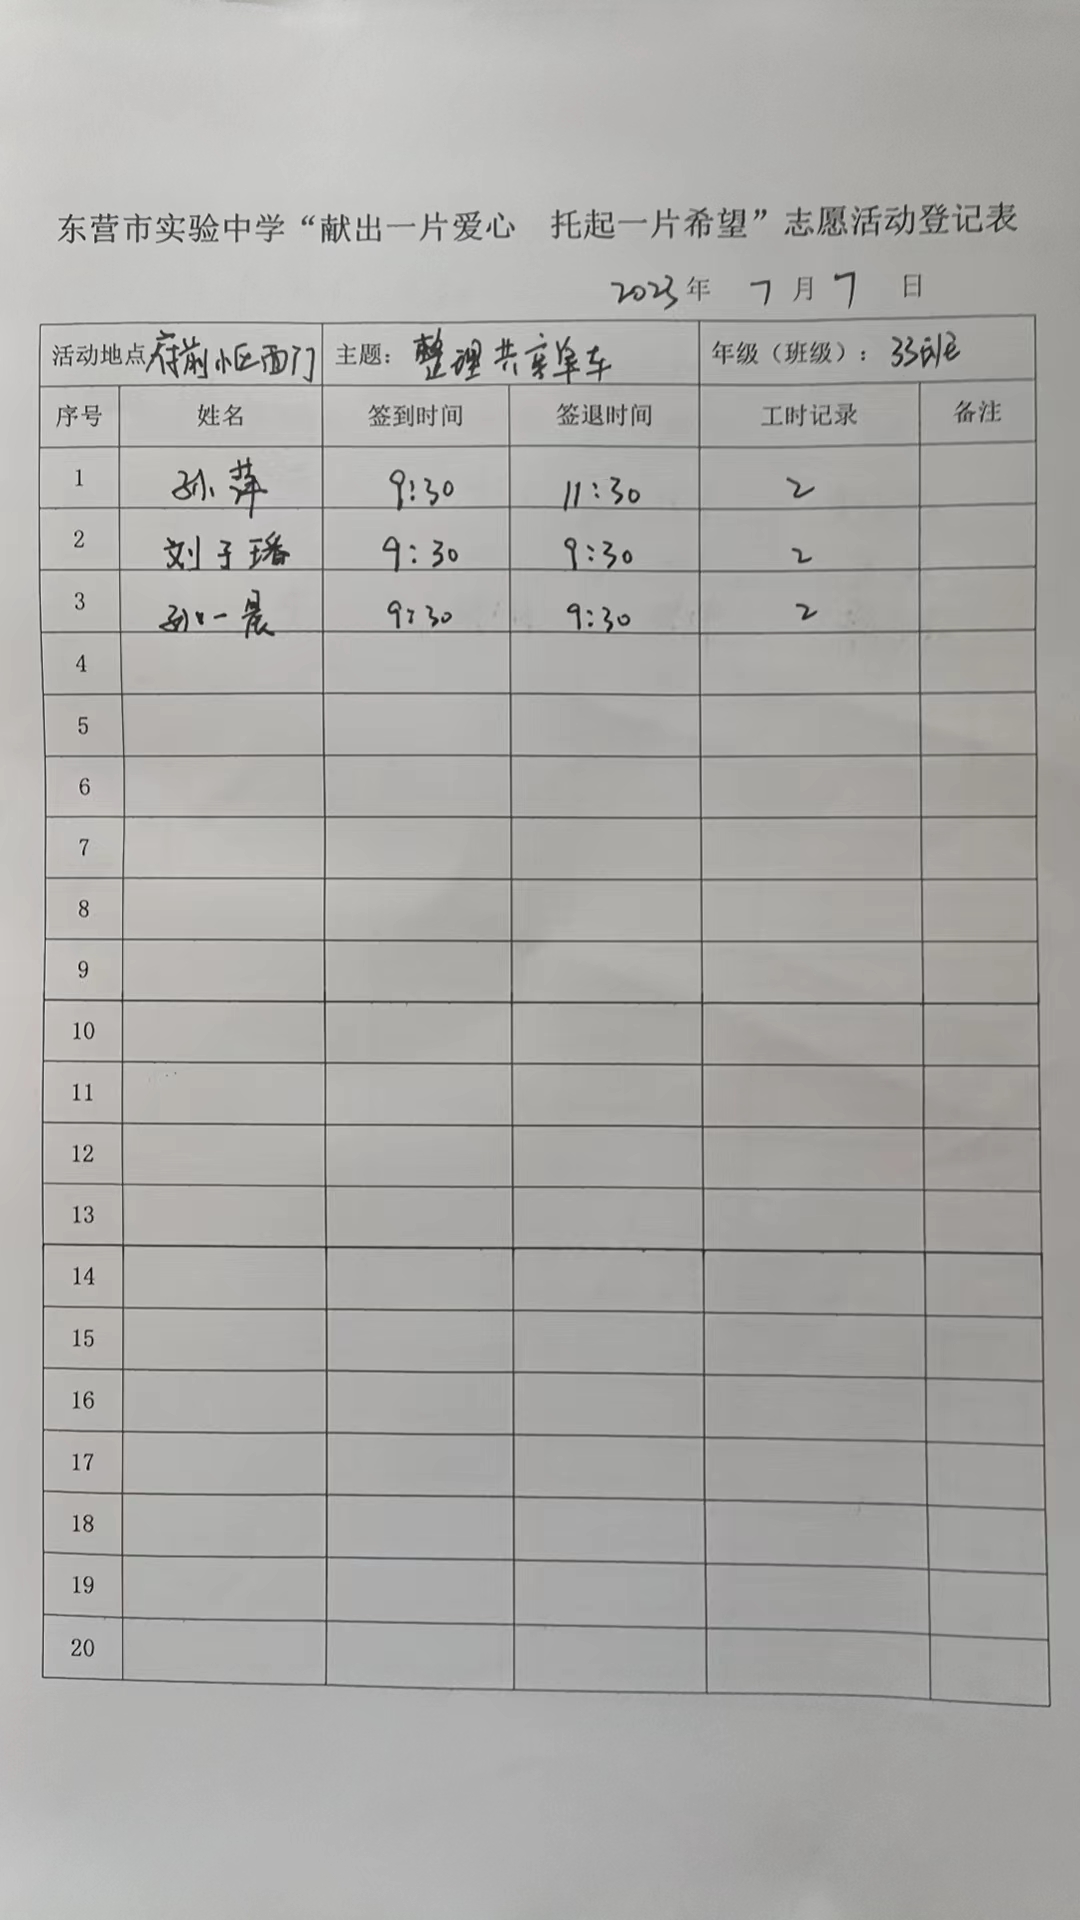 东营市实验中学“献出一片爱心 托起一片希望”志愿活动登记表
2023年 7月7 日
活动地点 府前小区西门 主题: 整理共享单车 年级（班级）: 33班
序号 姓名 签到时间 签退时间 工时记录 备注
1 孙萍 9:30 11:30 2
2 刘于璠 9:30 9:30 2
3 孙一晨 9:30 9:30 2
4
5
6
7
8
9
10
11
12
13
14
15
16
17
18
19
20